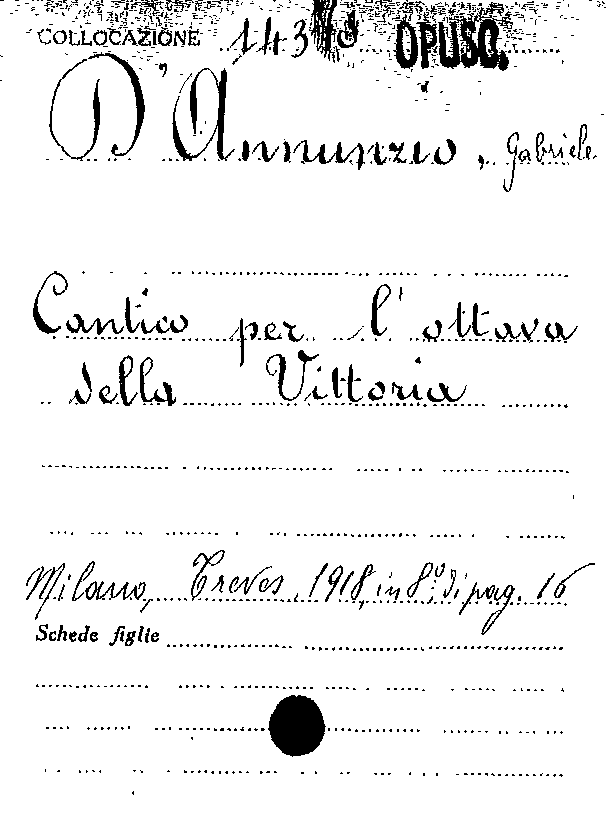 COLLOCAZIONE 143 OPUSC.
D'Annunzio, Gabriele
Cantico per l'ottava
della Vittoria
Milano, Treves, 1918, in 8º, di pag. 16
Schede figlie